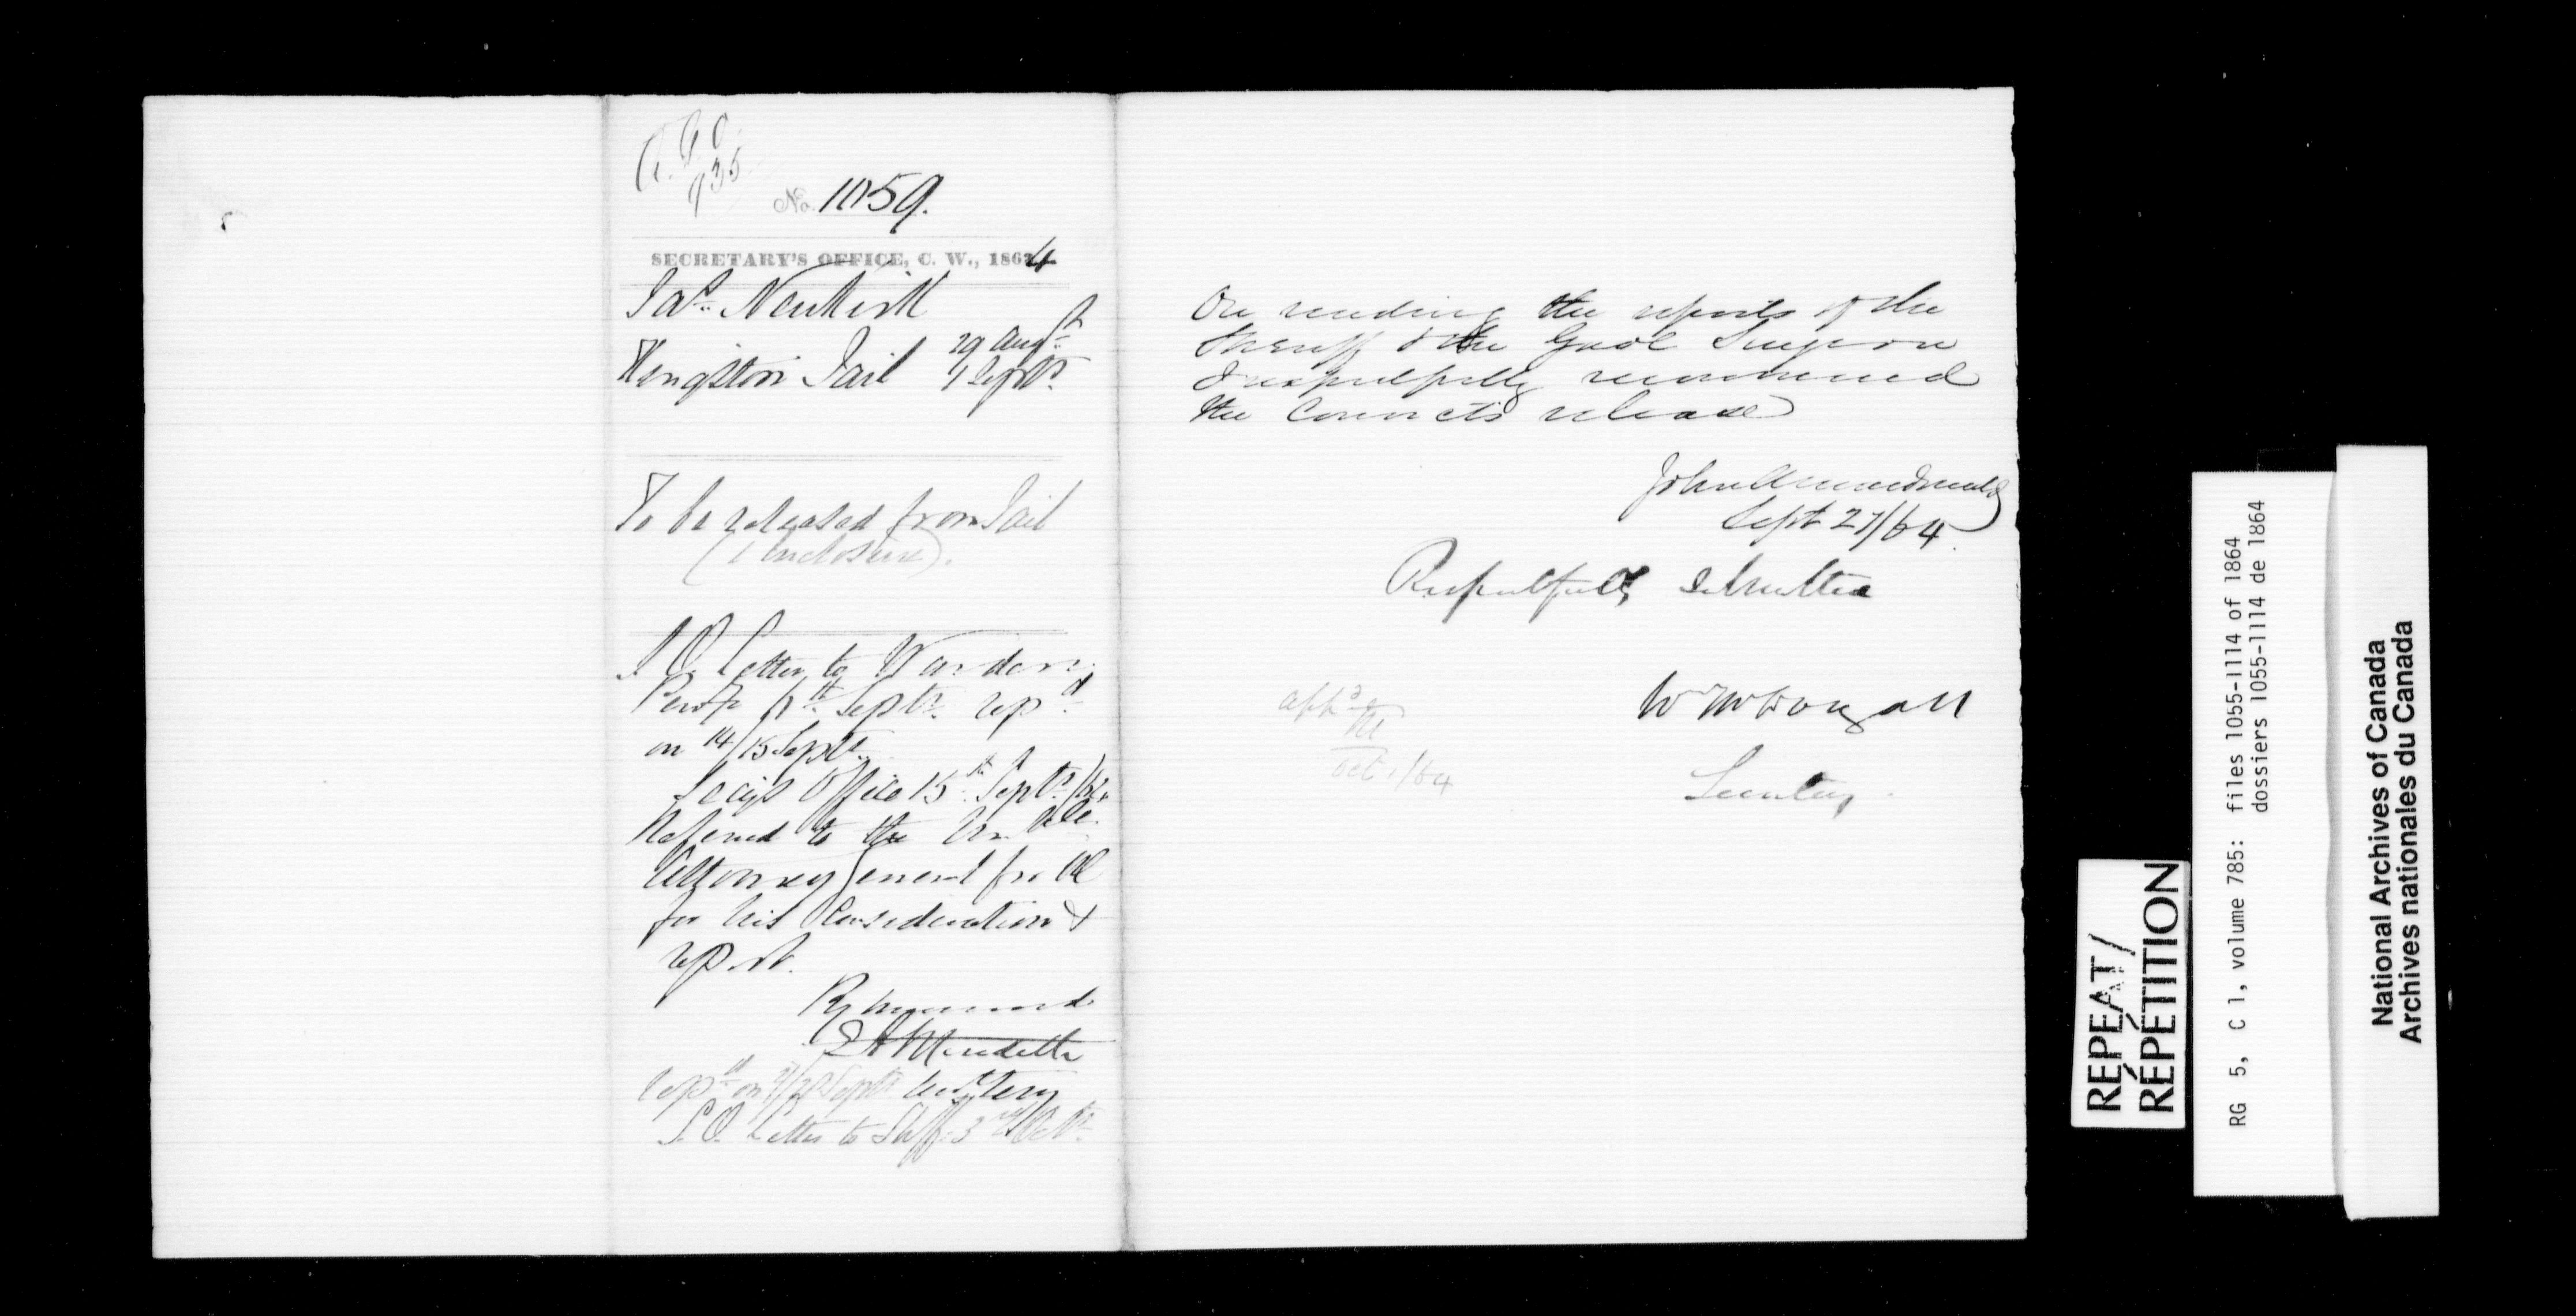 A. G. O.
935
No. 1059.
SECRETARY'S OFFICE, C. W., 1864
Jas. Neukirk
Kingston Jail 29 Augt.
1 Septr.
To be released from Jail
(1 enclosure).
S. O. Letter to Warden
Penty Septr. repd.
on 14/15 Septr.
Secy's Office 15th Septr. /64
Referred to the Honble.
Attorney General for
for his Consideration &
report.
By command
E A Meredith
repd. on Septr.
S. O. Letter to Shff. 3rd Octr.
On reading the reports of the
Sheriff & the Gaol Surgeon
I respectfully recommend
the Convicts release
John A Macdonald
Sept 27/64
Respectfully submitted
Wm McDougall
Secretary.
appd.
M
Oct 1/64
REPEAT/
RÉPÉTITION
RG 5, C 1, volume 785: files 1055-1114 of 1864
dossiers 1055-1114 de 1864
National Archives of Canada
Archives nationales du Canada